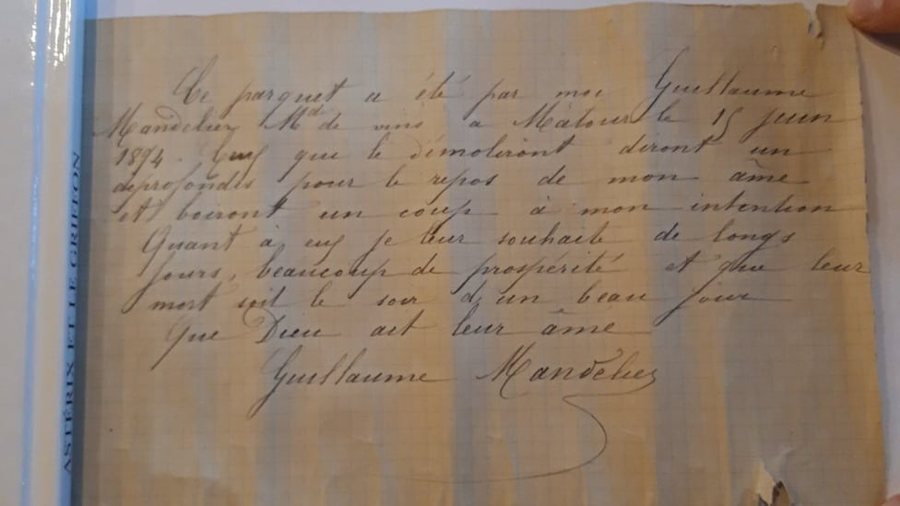 Ce parquet a été par moi Guillaume
Mandeliez Md de vins a Matour le 15 juin
1894. Ceux que le démoliront diront un
deprofondes pour le repos de mon âme
et boiront un coup à mon intention
Quant à eux je leur souhaite de longs
jours, beaucoup de prospérité et que leur
mort soit le soir d'un beau jour
Que Dieu ait leur âme
Guillaume Mandeliez
ASTÉRIX ET LE GRIFFON